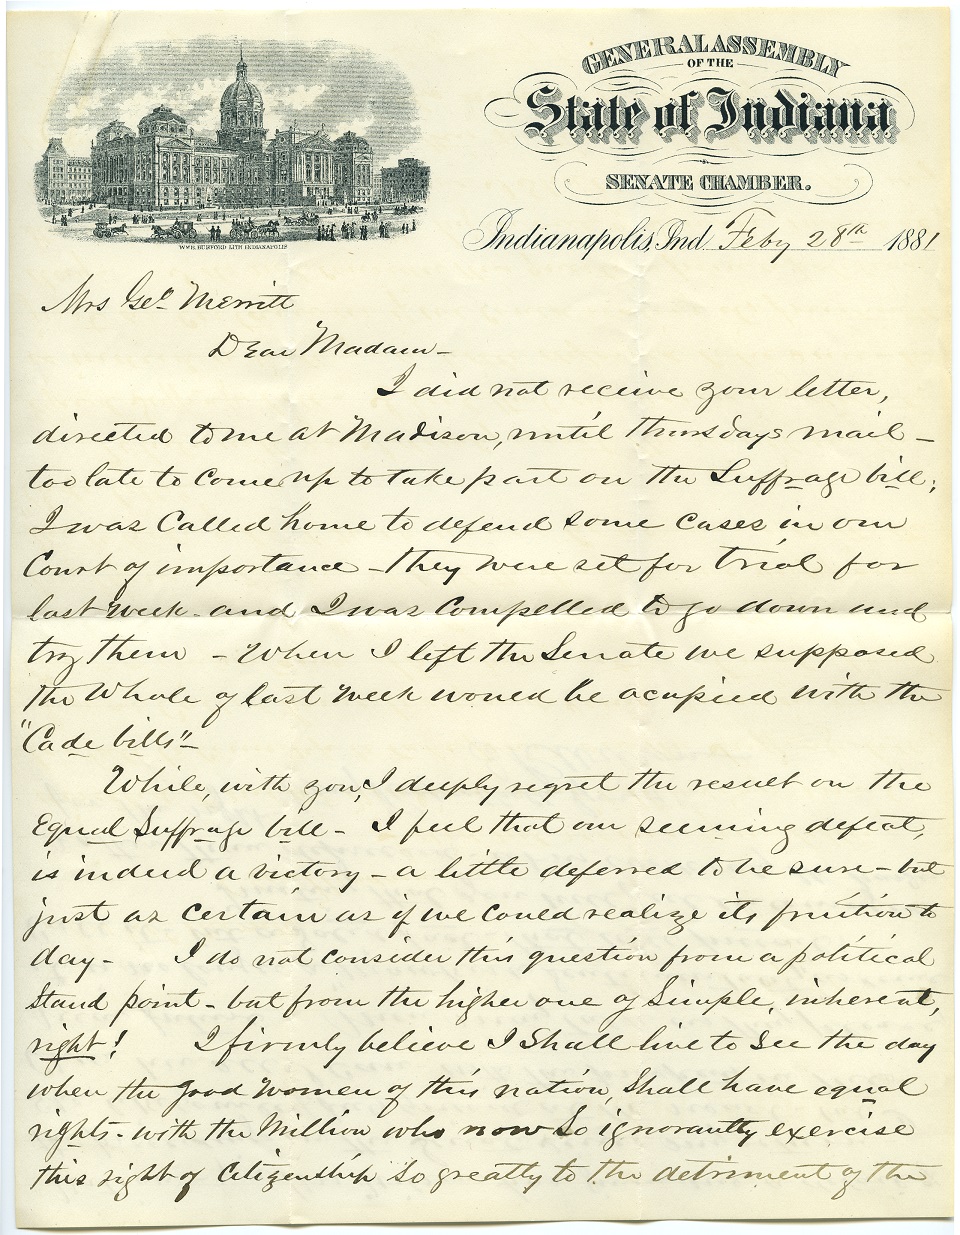 GENERAL ASSEMBLY
OF THE
State of Indiana
SENATE CHAMBER.
WM. B. BURFORD LITH. INDIANAPOLIS
Indianapolis, Ind. Feby 28th 1881
Mrs Geo. Merritt
Dear Madam –
I did not receive your letter,
directed to me at Madison, until thursdays mail –
too late to come up to take part on the Suffrage bill;
I was Called home to defend some cases in our
Court of importance – they were set for trial for
last week – and I was Compelled to go down and
try them – When I left the Senate we supposed
the Whole of last week would be ocupied with the
"Code bills" –
While, with you, I deeply regret the result on the
Equal Suffrage bill – I feel that our seeming defeat,
is indeed a victory – a little deferred to be sure – but
just as certain as if we could realize its fruition to
day – I do not consider this question from a political
stand point – but from the higher one of Simple, inherent,
right! I firmly believe I Shall live to See the day
when the good women of this nation, Shall have equal
rights – with the Million who now So ignorantly exercise
this right of Citizenship So greatly to the detriment of the